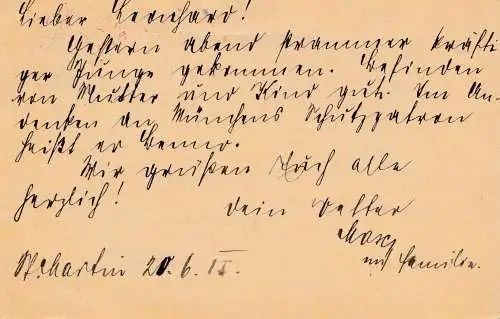 Lieber Bernhard!
Gestern abend strammer kräfti
ger Junge gekommen. Befinden
von Mutter und Kind gut. Im An-
denken an Münchens Schutzpatron
heißt er Benno.
Wir grüßen Euch alle
herzlich!
Dein Vetter
Max
und Familie.
St. Martin 20. 6.